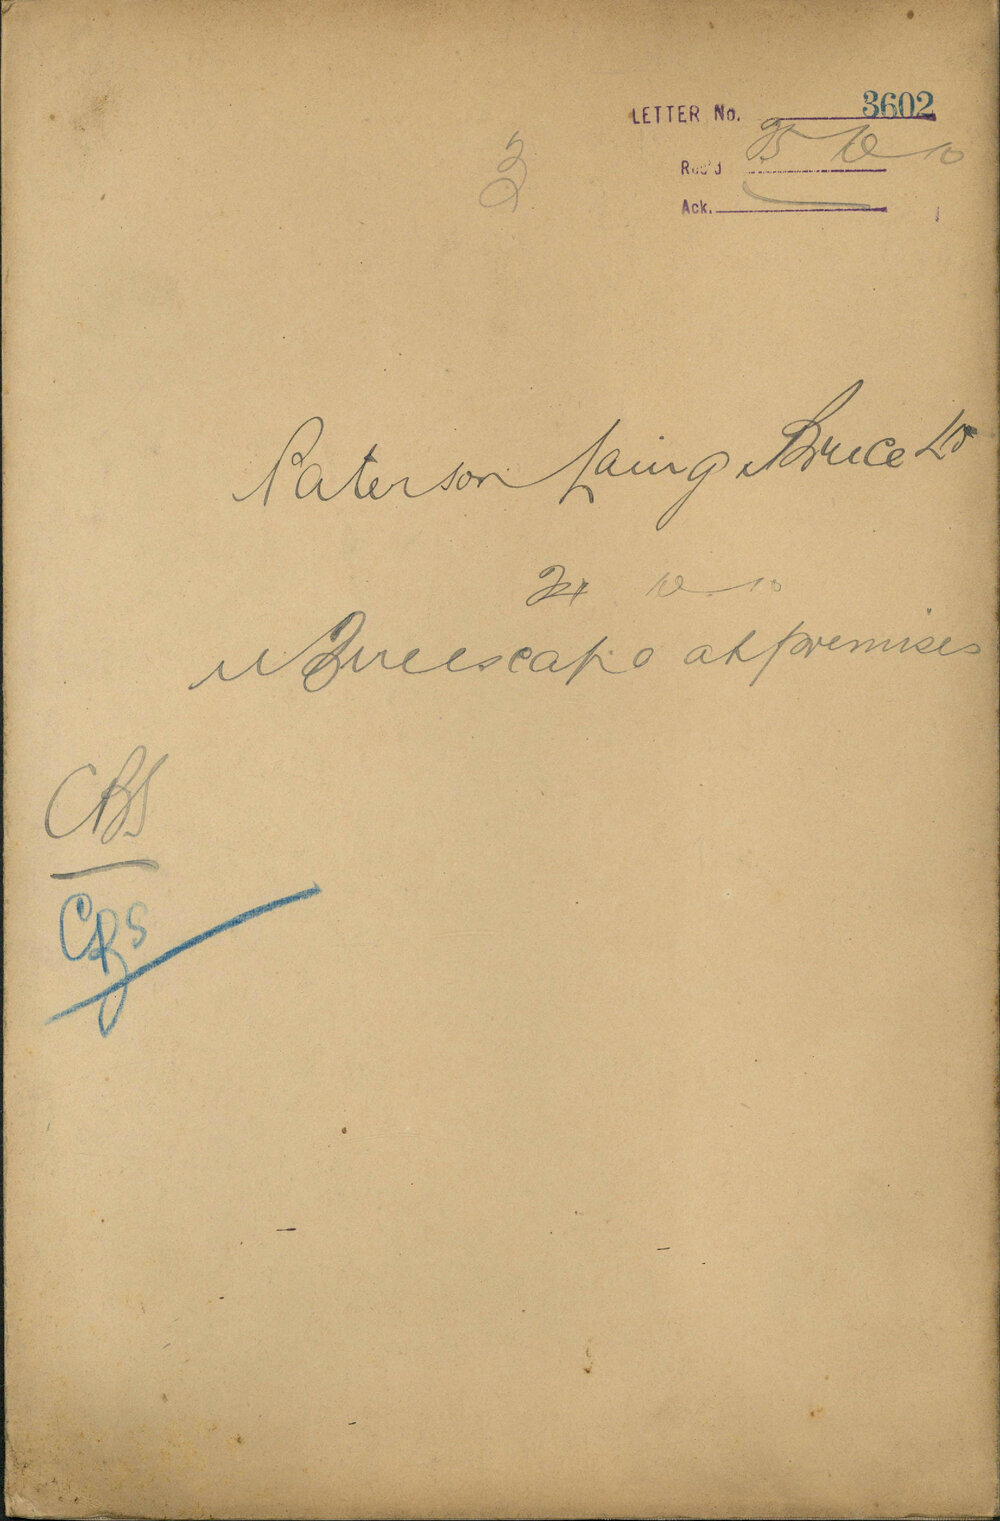 LETTER No. 3602
Rec'd 25 10 10
Ack.
3
Paterson Laing & Bruce Ld
24 10 10
re Fire escape at premises
CBS
CBS